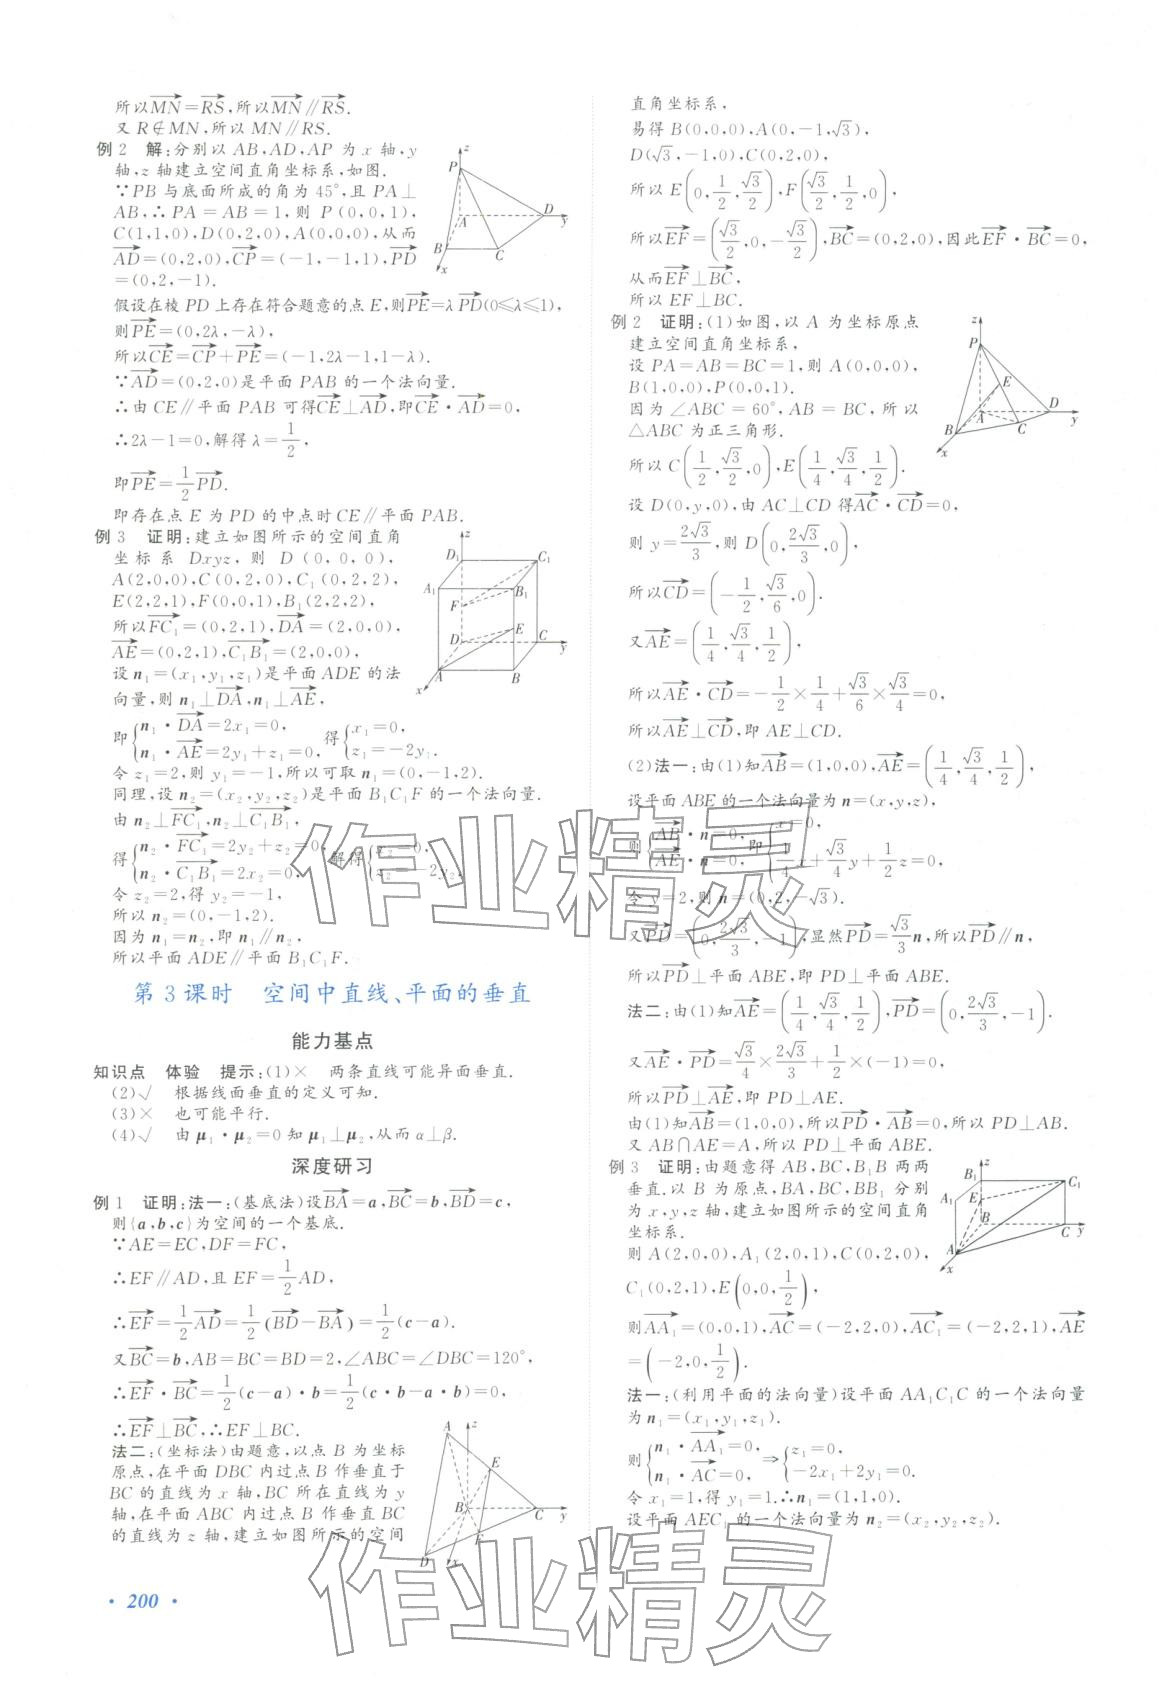 所以$\overrightarrow{MN}=\overrightarrow{RS}$,所以$\overrightarrow{MN}∥\overrightarrow{RS}$.
又 R∉MN,所以 MN∥RS.
例2 解:分别以 AB,AD,AP 为 x 轴,y
轴,z 轴建立空间直角坐标系,如图.
∵PB 与底面所成的角为 45°,且 PA⊥
AB,∴PA=AB=1,则 P(0,0,1),
C(1,1,0),D(0,2,0),A(0,0,0),从而
$\overrightarrow{AD}$=(0,2,0),$\overrightarrow{CP}$=(-1,-1,1),$\overrightarrow{PD}$
=(0,2,-1).
假设在棱 PD 上存在符合题意的点 E,则$\overrightarrow{PE}=λ\overrightarrow{PD}$(0≤λ≤1),
则$\overrightarrow{PE}$=(0,2λ,-λ),
所以$\overrightarrow{CE}=\overrightarrow{CP}+\overrightarrow{PE}$=(-1,2λ-1,1-λ).
∵$\overrightarrow{AD}$=(0,2,0)是平面 PAB 的一个法向量.
∴由 CE∥平面 PAB 可得$\overrightarrow{CE}⊥\overrightarrow{AD}$,即$\overrightarrow{CE}·\overrightarrow{AD}$=0,
∴2λ-1=0,解得 λ=$\frac{1}{2}$,
即$\overrightarrow{PE}=\frac{1}{2}\overrightarrow{PD}$.
即存在点 E 为 PD 的中点时 CE∥平面 PAB.
例3 证明:建立如图所示的空间直角
坐标系 Dxyz,则 D(0,0,0),
A(2,0,0),C(0,2,0),C₁(0,2,2),
E(2,2,1),F(0,0,1),B₁(2,2,2),
所以$\overrightarrow{FC_1}$=(0,2,1),$\overrightarrow{DA}$=(2,0,0),
$\overrightarrow{AE}$=(0,2,1),$\overrightarrow{C_1B_1}$=(2,0,0).
设 n₁=(x₁,y₁,z₁)是平面 ADE 的法
向量,则 n₁⊥$\overrightarrow{DA}$,n₁⊥$\overrightarrow{AE}$,
即$\begin{cases}n_1·\overrightarrow{DA}=2x_1=0,\\n_1·\overrightarrow{AE}=2y_1+z_1=0,\end{cases}$得$\begin{cases}x_1=0,\\z_1=-2y_1.\end{cases}$
令 z₁=2,则 y₁=-1,所以可取 n₁=(0,-1,2).
同理,设 n₂=(x₂,y₂,z₂)是平面 B₁C₁F 的一个法向量.
由 n₂⊥$\overrightarrow{FC_1}$,n₂⊥$\overrightarrow{C_1B_1}$,
得$\begin{cases}n_2·\overrightarrow{FC_1}=2y_2+z_2=0,\\n_2·\overrightarrow{C_1B_1}=2x_2=0,\end{cases}$解得$\begin{cases}x_2=0,\\z_2=-2y_2.\end{cases}$
令 z₂=2,得 y₂=-1,
所以 n₂=(0,-1,2).
因为 n₁=n₂,即 n₁∥n₂,
所以平面 ADE∥平面 B₁C₁F.
第3课时 空间中直线、平面的垂直
能力基点
知识点 体验 提示:(1)× 两条直线可能异面垂直.
(2)√ 根据线面垂直的定义可知.
(3)× 也可能平行.
(4)√ 由 μ₁·μ₂=0 知 μ₁⊥μ₂,从而 α⊥β.
深度研习
例1 证明:法一:(基底法)设$\overrightarrow{BA}$=a,$\overrightarrow{BC}$=b,$\overrightarrow{BD}$=c,
则{a,b,c}为空间的一个基底.
∵AE=EC,DF=FC,
∴EF∥AD,且 EF=$\frac{1}{2}$AD,
∴$\overrightarrow{EF}=\frac{1}{2}\overrightarrow{AD}=\frac{1}{2}(\overrightarrow{BD}-\overrightarrow{BA})=\frac{1}{2}$(c-a).
又$\overrightarrow{BC}$=b,AB=BC=BD=2,∠ABC=∠DBC=120°,
∴$\overrightarrow{EF}·\overrightarrow{BC}=\frac{1}{2}$(c-a)·b=$\frac{1}{2}$(c·b-a·b)=0,
∴$\overrightarrow{EF}⊥\overrightarrow{BC}$,∴EF⊥BC.
法二:(坐标法)由题意,以点 B 为坐标
原点,在平面 DBC 内过点 B 作垂直于
BC 的直线为 x 轴,BC 所在直线为 y
轴,在平面 ABC 内过点 B 作垂直 BC
的直线为 z 轴,建立如图所示的空间
· 200 ·
直角坐标系,
易得 B(0,0,0),A(0,-1,√3),
D(√3,-1,0),C(0,2,0),
所以 E$\left(0,\frac{1}{2},\frac{\sqrt3}{2}\right)$,F$\left(\frac{\sqrt3}{2},\frac{1}{2},0\right)$,
所以$\overrightarrow{EF}=\left(\frac{\sqrt3}{2},0,-\frac{\sqrt3}{2}\right)$,$\overrightarrow{BC}$=(0,2,0),因此$\overrightarrow{EF}·\overrightarrow{BC}$=0,
从而$\overrightarrow{EF}⊥\overrightarrow{BC}$,
所以 EF⊥BC.
例2 证明:(1)如图,以 A 为坐标原点
建立空间直角坐标系,
设 PA=AB=BC=1,则 A(0,0,0),
B(1,0,0),P(0,0,1).
因为∠ABC=60°,AB=BC,所以
△ABC 为正三角形.
所以 C$\left(\frac{1}{2},\frac{\sqrt3}{2},0\right)$,E$\left(\frac{1}{4},\frac{\sqrt3}{4},\frac{1}{2}\right)$.
设 D(0,y,0),由 AC⊥CD 得$\overrightarrow{AC}·\overrightarrow{CD}$=0,
则 y=$\frac{2\sqrt3}{3}$,则 D$\left(0,\frac{2\sqrt3}{3},0\right)$,
所以$\overrightarrow{CD}=\left(-\frac{1}{2},\frac{\sqrt3}{6},0\right)$.
又$\overrightarrow{AE}=\left(\frac{1}{4},\frac{\sqrt3}{4},\frac{1}{2}\right)$,
所以$\overrightarrow{AE}·\overrightarrow{CD}=-\frac{1}{2}×\frac{1}{4}+\frac{\sqrt3}{6}×\frac{\sqrt3}{4}$=0,
所以$\overrightarrow{AE}⊥\overrightarrow{CD}$,即 AE⊥CD.
(2)法一:由(1)知$\overrightarrow{AB}$=(1,0,0),$\overrightarrow{AE}=\left(\frac{1}{4},\frac{\sqrt3}{4},\frac{1}{2}\right)$,
设平面 ABE 的一个法向量为 n=(x,y,z),
则$\begin{cases}\overrightarrow{AB}·n=0,\\\overrightarrow{AE}·n=0,\end{cases}$即$\begin{cases}x=0,\\\frac{1}{4}x+\frac{\sqrt3}{4}y+\frac{1}{2}z=0,\end{cases}$
令 y=2,则 n=(0,2,-√3).
又$\overrightarrow{PD}=\left(0,\frac{2\sqrt3}{3},-1\right)$,显然$\overrightarrow{PD}=\frac{\sqrt3}{3}$n,所以$\overrightarrow{PD}$∥n,
所以$\overrightarrow{PD}$⊥平面 ABE,即 PD⊥平面 ABE.
法二:由(1)知$\overrightarrow{AE}=\left(\frac{1}{4},\frac{\sqrt3}{4},\frac{1}{2}\right)$,$\overrightarrow{PD}=\left(0,\frac{2\sqrt3}{3},-1\right)$.
又$\overrightarrow{AE}·\overrightarrow{PD}=\frac{\sqrt3}{4}×\frac{2\sqrt3}{3}+\frac{1}{2}$×(-1)=0,
所以$\overrightarrow{PD}⊥\overrightarrow{AE}$,即 PD⊥AE.
由(1)知$\overrightarrow{AB}$=(1,0,0),所以$\overrightarrow{PD}·\overrightarrow{AB}$=0,所以 PD⊥AB.
又 AB∩AE=A,所以 PD⊥平面 ABE.
例3 证明:由题意得 AB,BC,B₁B 两两
垂直.以 B 为原点,BA,BC,BB₁ 分别
为 x,y,z 轴,建立如图所示的空间直角
坐标系.
则 A(2,0,0),A₁(2,0,1),C(0,2,0),
C₁(0,2,1),E$\left(0,0,\frac{1}{2}\right)$,
则$\overrightarrow{AA_1}$=(0,0,1),$\overrightarrow{AC}$=(-2,2,0),$\overrightarrow{AC_1}$=(-2,2,1),$\overrightarrow{AE}$
=$\left(-2,0,\frac{1}{2}\right)$.
法一:(利用平面的法向量)设平面 AA₁C₁C 的一个法向量
为 n₁=(x₁,y₁,z₁).
则$\begin{cases}n_1·\overrightarrow{AA_1}=0,\\n_1·\overrightarrow{AC}=0,\end{cases}⇒\begin{cases}z_1=0,\\-2x_1+2y_1=0.\end{cases}$
令 x₁=1,得 y₁=1.∴n₁=(1,1,0).
设平面 AEC₁ 的一个法向量为 n₂=(x₂,y₂,z₂).
作业精灵
作业精灵